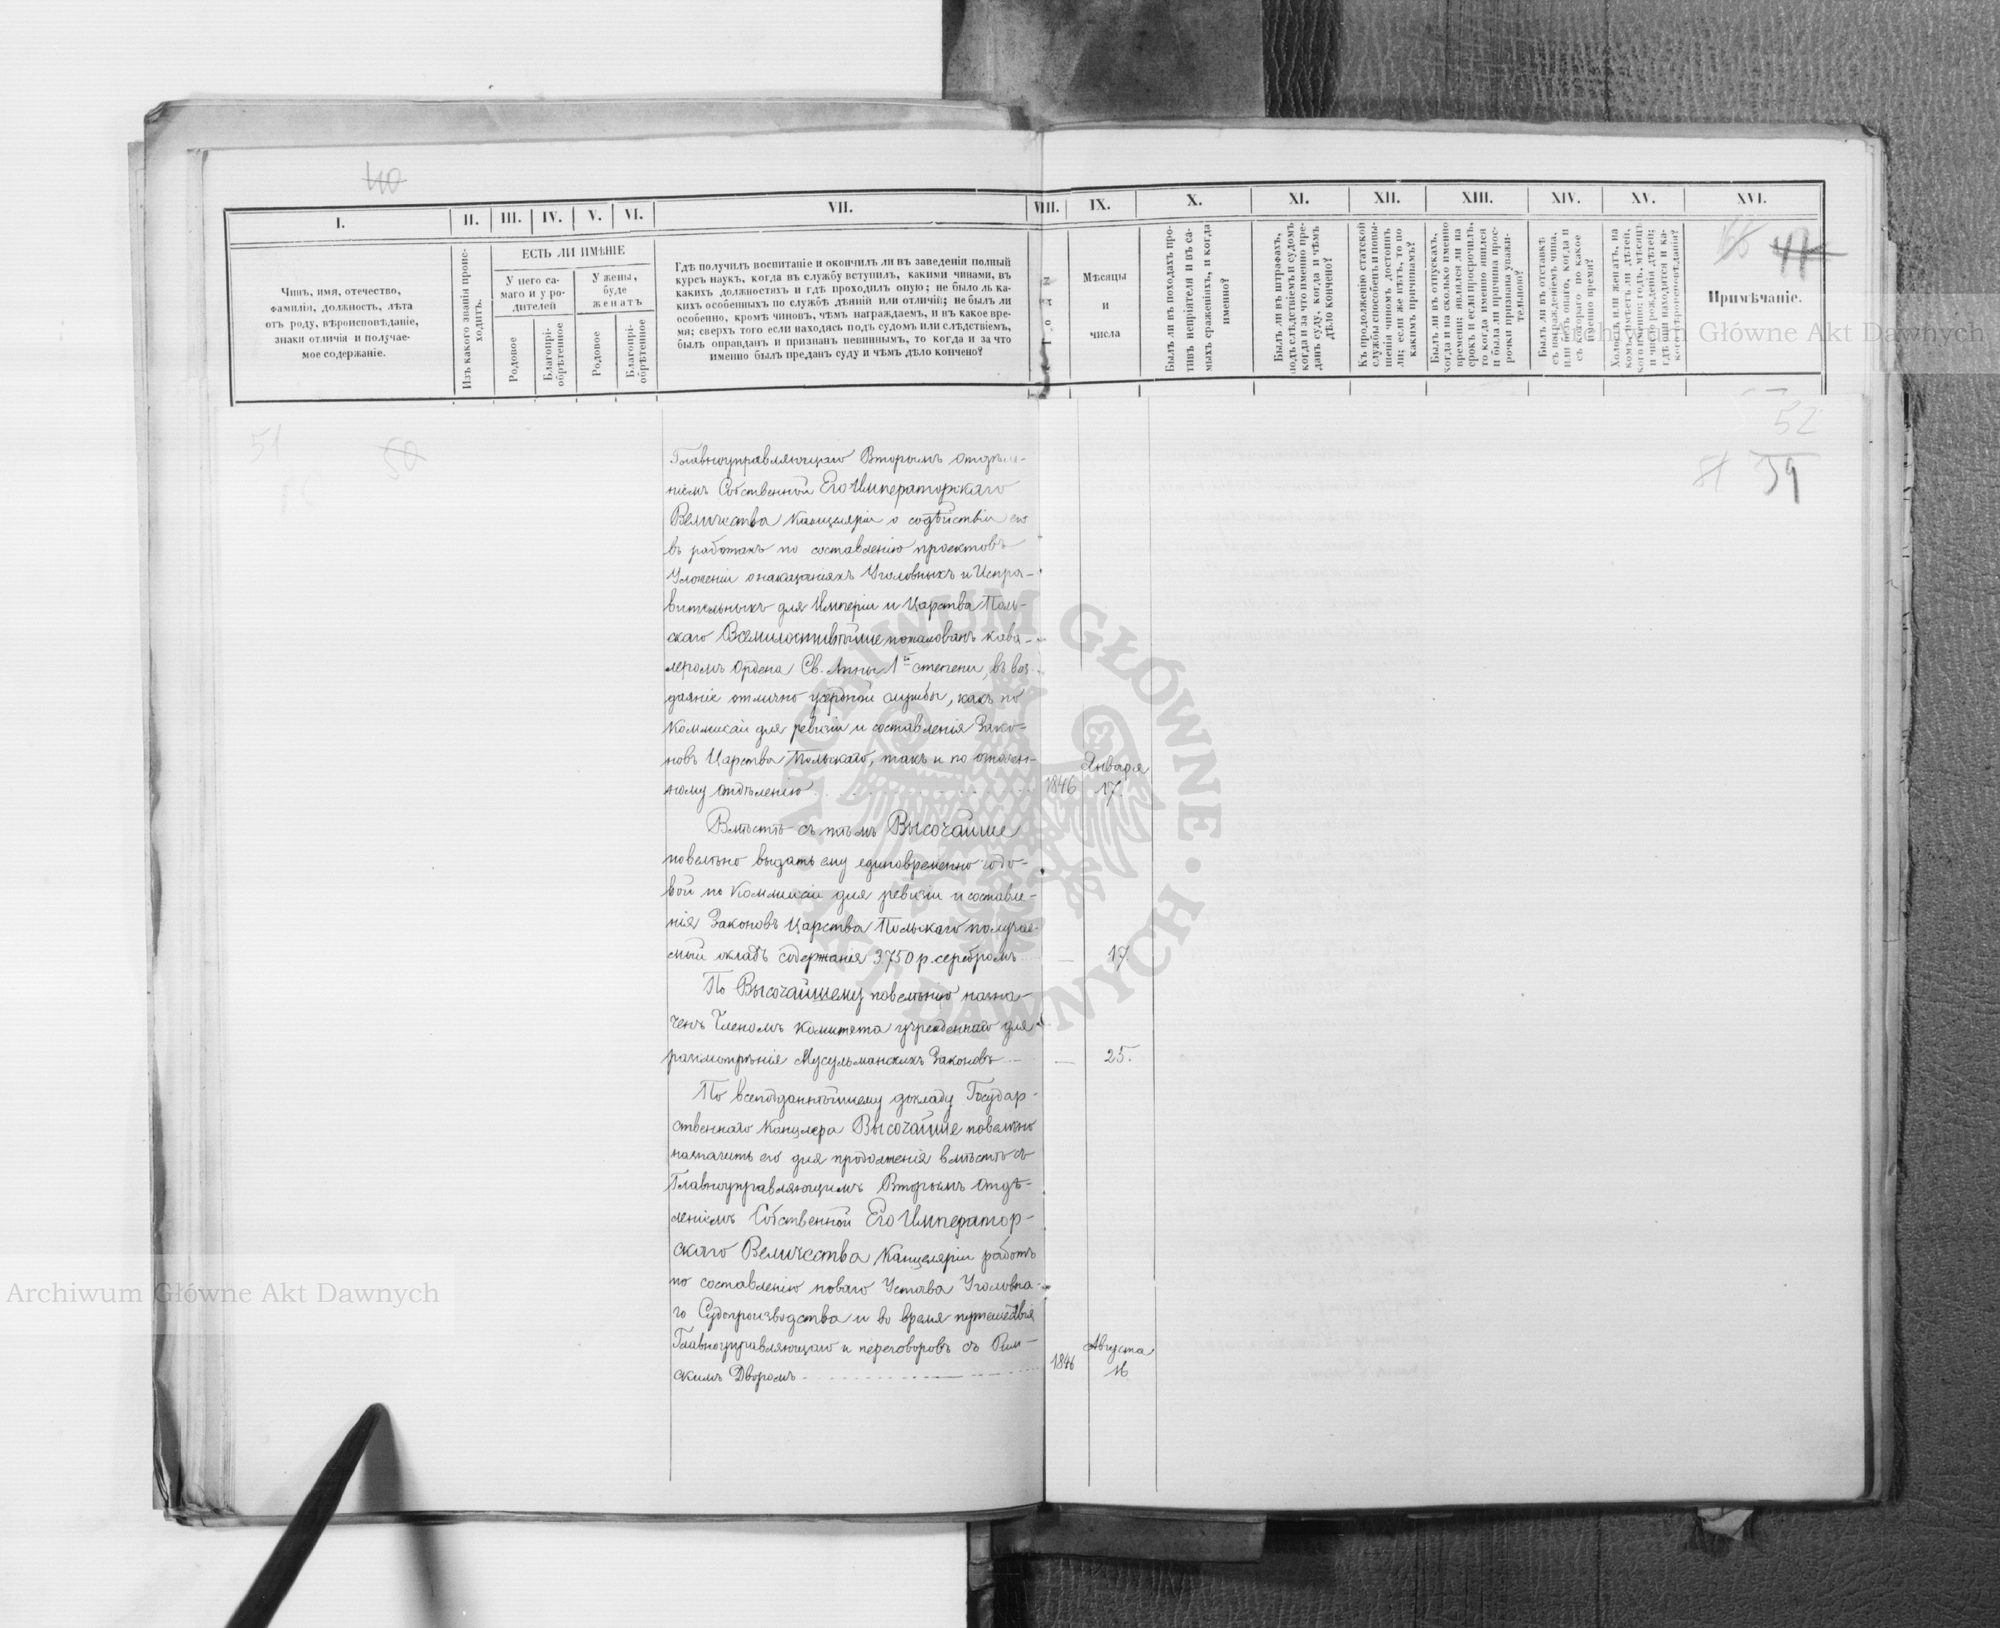 40
I.
II.
III.
IV.
V.
VI.
VII.
VIII.
IX.
X.
XI.
XII.
XIII.
XIV.
XV.
XVI.
Чинъ, имя, отечество,
фамилія, должность, лѣта
отъ роду, вѣроисповѣданіе,
знаки отличія и получае-
мое содержаніе.
Изъ какого званія проис-
ходитъ.
ЕСТЬ ЛИ ИМѢНІЕ
У него са-
маго и у ро-
дителей
У жены,
буде
женатъ
Родовое
Благопрі-
обрѣтенное
Родовое
Благопрі-
обрѣтенное
Гдѣ получилъ воспитаніе и окончилъ ли въ заведеніи полный
курсъ наукъ, когда въ службу вступилъ, какими чинами, въ
какихъ должностяхъ и гдѣ проходилъ оную; не было ль ка-
кихъ особенныхъ по службѣ дѣяній или отличій; не былъ ли
особенно, кромѣ чиновъ, чѣмъ награждаемъ, и въ какое вре-
мя; сверхъ того если находясь подъ судомъ или слѣдствіемъ,
былъ оправданъ и признанъ невиннымъ, то когда и за что
именно былъ преданъ суду и чѣмъ дѣло кончено?
Мѣсяцы
и
числа
Былъ ли въ походахъ про-
тивъ непріятеля и въ са-
мыхъ сраженіяхъ, и когда
именно?
Былъ ли въ штрафахъ,
подъ слѣдствіемъ и судомъ
когда и за что именно пре-
данъ суду, когда и чѣмъ
дѣло кончено?
Къ продолженію статской
службы способенъ и повы-
шенія чиномъ достоинъ
ли; если же нѣтъ, то по
какимъ причинамъ?
Былъ ли въ отпускахъ,
когда и на сколько именно
времени; явился ли на
срокъ и если просрочилъ,
то когда именно явился
и была ли причина прос-
рочки признана уважи-
тельною?
Былъ ли въ отставкѣ
съ награжденіемъ чина,
или безъ онаго, когда и
съ котораго по какое
именно время?
Холостъ или женатъ, на
комъ, имѣетъ ли дѣтей,
кого именно; годъ, мѣсяцъ
и число рожденія дѣтей;
гдѣ они находятся и ка-
кого вѣроисповѣданія?
47
Примѣчаніе.
Archiwum Główne Akt Dawnych
51
50
52
39
Главноуправляющаго Вторымъ отдѣле-
ніемъ Собственной Его Императорскаго
Величества Канцеляріи о содѣйствіи его
въ работахъ по составленію проектовъ
Уложеній о наказаніяхъ Уголовныхъ и Испра-
вительныхъ для Имперіи и Царства Поль-
скаго Всемилостивѣйше пожалованъ кава-
леромъ Ордена Св. Анны 1й степени, въ воз-
даяніе отлично усердной службы, какъ по
Коммисіи для ревизіи и составленія Зако-
новъ Царства Польскаго, такъ и по означен-
ному отдѣленію
1846
Января
17.
Вмѣстѣ съ тѣмъ Высочайше
повелѣно выдать ему единовременно годо-
вой по Коммисіи для ревизіи и составле-
нія Законовъ Царства Польскаго получае-
мый окладъ содержанія 3.750 р. серебромъ
— 17.
По Высочайшему повелѣнію назна-
ченъ Членомъ Комитета учрежденнаго для
разсмотрѣнія Мусульманскихъ Законовъ
— 25.
По всеподданнѣйшему докладу Государ-
ственнаго Канцлера Высочайше повелѣно
назначить его для продолженія вмѣстѣ съ
Главноуправляющимъ Вторымъ Отдѣ-
леніемъ Собственной Его Император-
скаго Величества Канцеляріи работъ
по составленію новаго Устава Уголовна-
го Судопроизводства и во время путешествія
Главноуправляющаго и переговоровъ съ Рим-
скимъ Дворомъ
1846
Августа
16
ARCHIWUM GŁÓWNE AKT DAWNYCH
Archiwum Główne Akt Dawnych